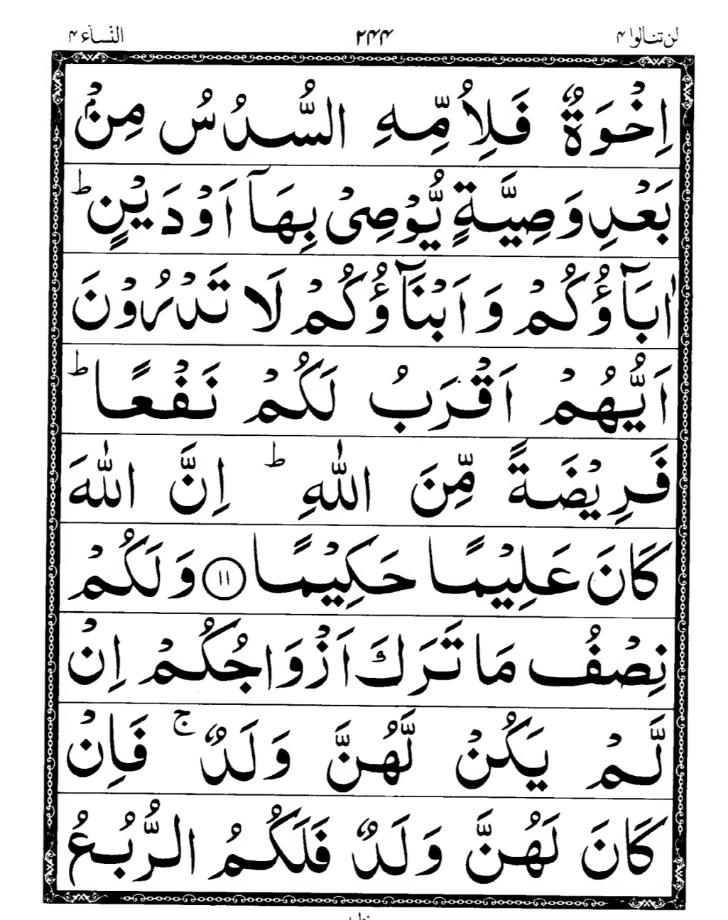 لن تنالوا ۴ ۲۴۴ النسآء ۴
اِخْوَةٌ فَلِاُمِّهِ السُّدُسُ مِنْۢ
بَعْدِ وَصِیَّةٍ یُّوْصِیْ بِهَاۤ اَوْ دَیْنٍ ؕ
اٰبَآؤُكُمْ وَ اَبْنَآؤُكُمْ لَا تَدْرُوْنَ
اَیُّهُمْ اَقْرَبُ لَكُمْ نَفْعًا ؕ
فَرِیْضَةً مِّنَ اللّٰهِ ؕ اِنَّ اللّٰهَ
كَانَ عَلِیْمًا حَكِیْمًا ۱۱ وَ لَكُمْ
نِصْفُ مَا تَرَكَ اَزْوَاجُكُمْ اِنْ
لَّمْ یَكُنْ لَّهُنَّ وَلَدٌ ۚ فَاِنْ
كَانَ لَهُنَّ وَلَدٌ فَلَكُمُ الرُّبُعُ